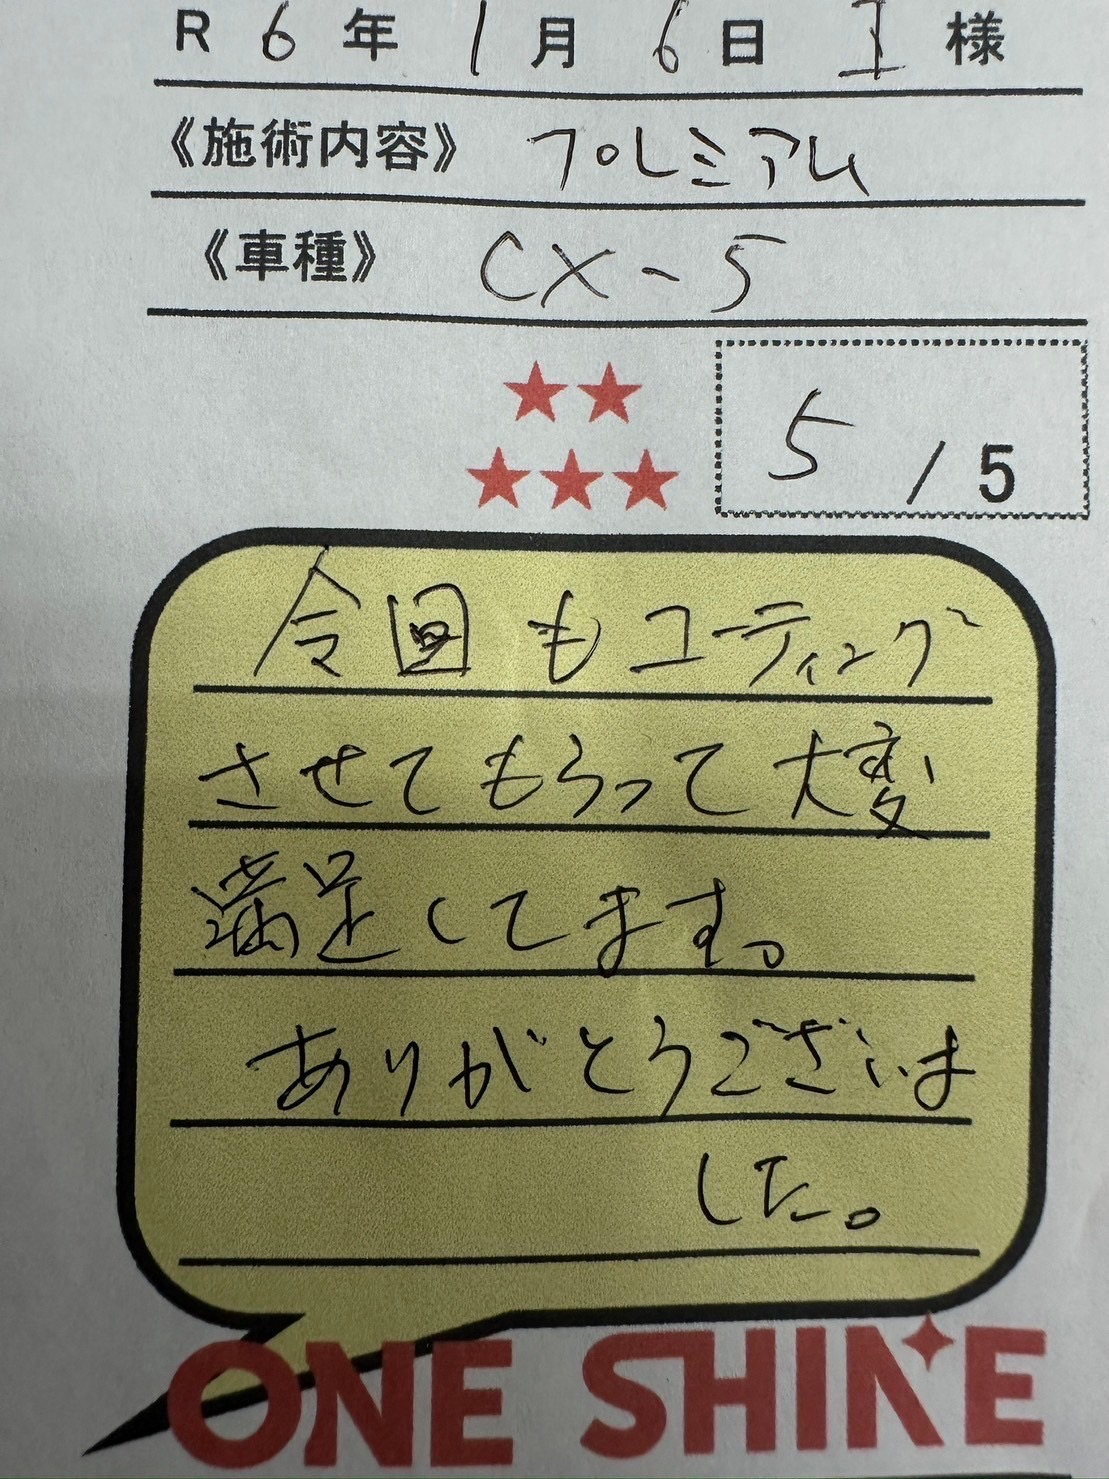 R 6 年 1 月 6 日 I 様
《施術内容》 プレミアム
《車種》 CX-5
5 / 5
今回もコーティング
させてもらって大変
満足してます。
ありがとうございま
した。
ONE SHINE